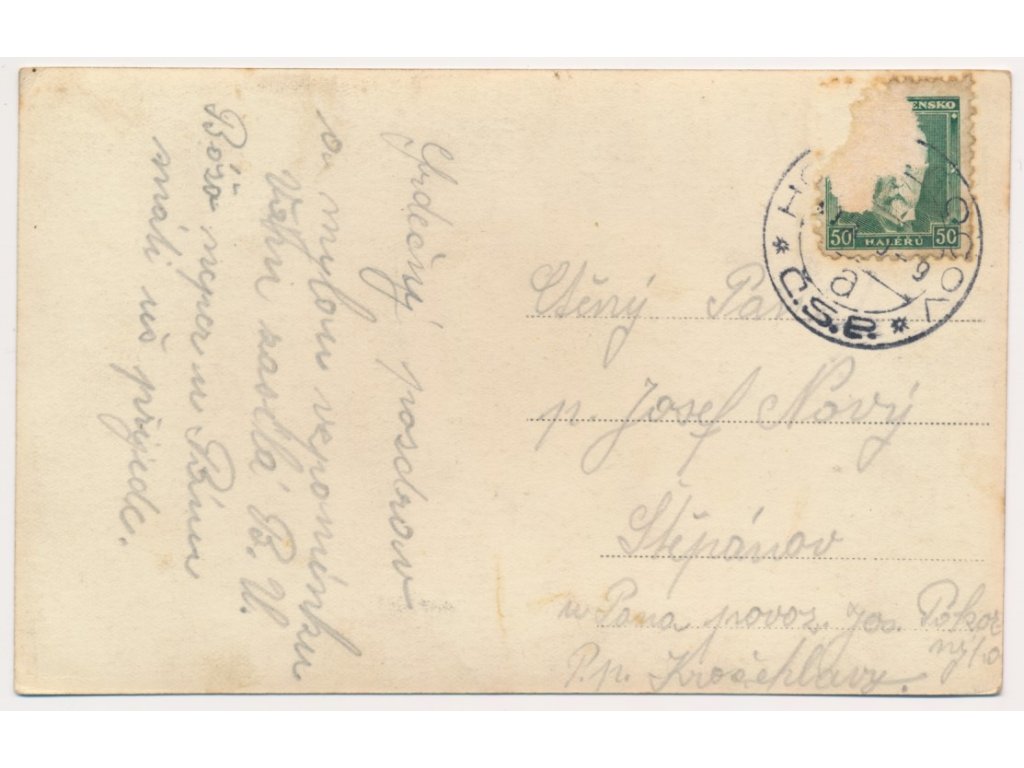 Srdečný pozdrav
a mylou vzpomínku
Vám zaslá B. U.
Bóža neperu Vám
snáti už přijede.
ENSKO
50 HALÉRŮ 50
H
Č.S.P.
Ctěný Pan
p. Josef Nový
Štěpánov
u Pana povoz. Jos. Pokor
nýho
P.p. Kročehlavy.